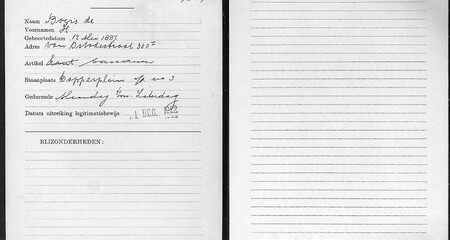 Naam Boris de
Voornamen H
Geboortedatum 12 Mei 1887
Adres van Ostadestraat 300
Artikel bananen
Staanplaats op no 3
Gedurende Maandag t/m Zaterdag
Datum uitreiking legitimatiebewijs 1 DEC.
BIJZONDERHEDEN: